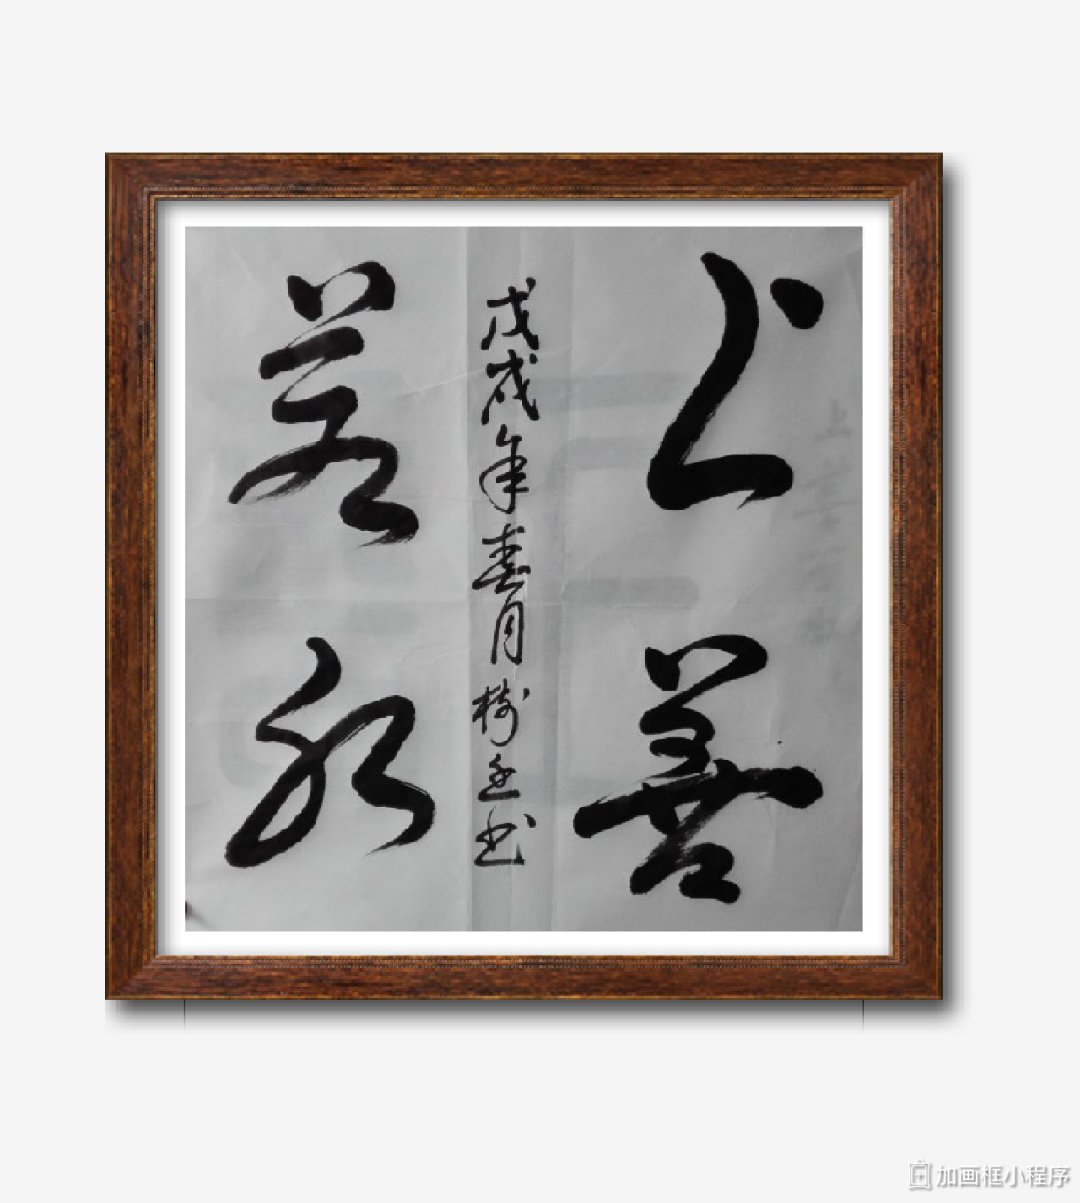 上善
若水
戊戌年春月树书
加画框小程序